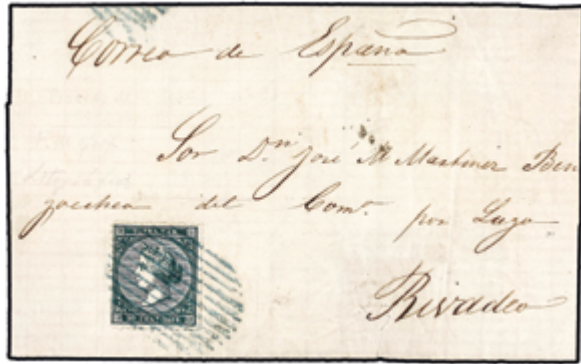 Correo de España
Sor Dn José M Martinez Ben
goechea del Comº. por Lugo
Rivadeo